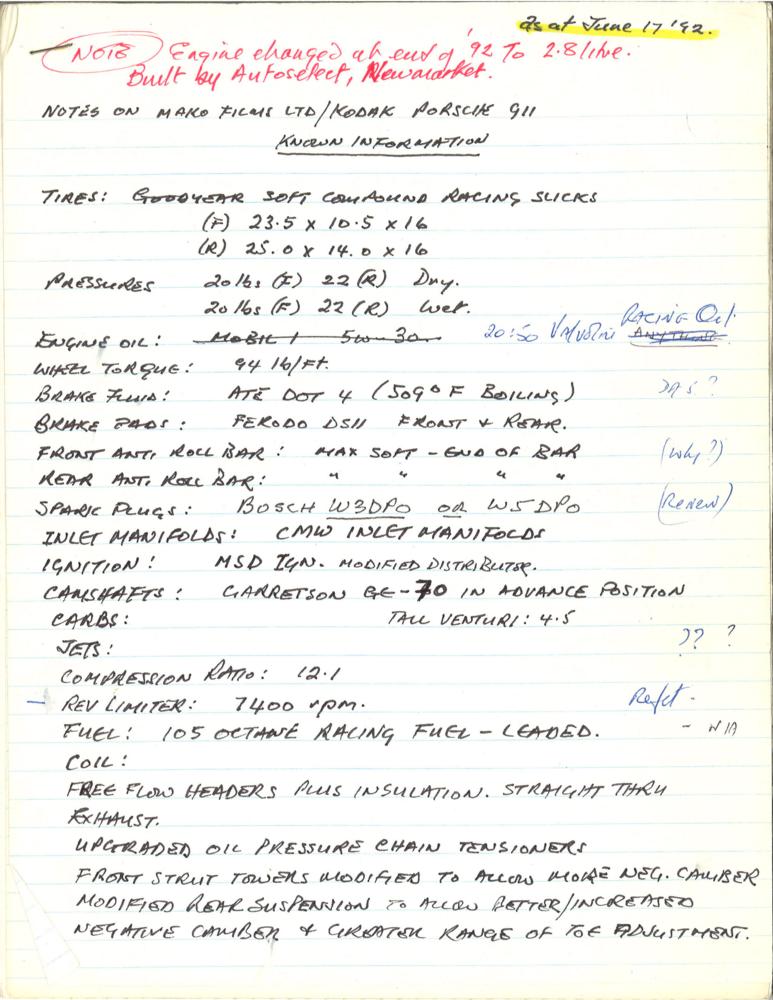 as at June 17 '92.
NOTE Engine changed at end of '92 To 2.8 litre.
Built by Autoselect, Newmarket.
NOTES ON MAKO FILMS LTD/KODAK PORSCHE 911
KNOWN INFORMATION
TIRES: GOODYEAR SOFT COMPOUND RACING SLICKS
(F) 23.5 x 10.5 x 16
(R) 25.0 x 14.0 x 16
PRESSURES 20 lbs (F) 22 (R) Dry.
20 lbs (F) 22 (R) Wet.
RACING OIL.
ENGINE OIL: MOBIL 1 5w-30 20:50 Valvoline ANYTHING
WHEEL TORQUE: 94 lb/Ft.
BRAKE FLUID: ATE DOT 4 (509° F BOILING)
BRAKE PADS: FERODO DS11 FRONT & REAR.
FRONT ANTI ROLL BAR: MAX SOFT - END OF BAR (Why?)
REAR ANTI ROLL BAR: " " " "
SPARK PLUGS: BOSCH W3DPO OR W5DPO (Renew)
INLET MANIFOLDS: CMW INLET MANIFOLDS
IGNITION: MSD IGN. MODIFIED DISTRIBUTOR.
CAMSHAFTS: GARRETSON GE-70 IN ADVANCE POSITION
CARBS: TALL VENTURI: 4.5
JETS: ?? ?
COMPRESSION RATIO: 12.1
- REV LIMITER: 7400 rpm.
FUEL: 105 OCTANE RACING FUEL - LEADED. - N/A
COIL:
FREE FLOW HEADERS PLUS INSULATION. STRAIGHT THRU
EXHAUST.
UPGRADED OIL PRESSURE CHAIN TENSIONERS
FRONT STRUT TOWERS MODIFIED TO ALLOW MORE NEG. CAMBER
MODIFIED REAR SUSPENSION TO ALLOW BETTER/INCREASED
NEGATIVE CAMBER & GREATER RANGE OF TOE ADJUSTMENT.